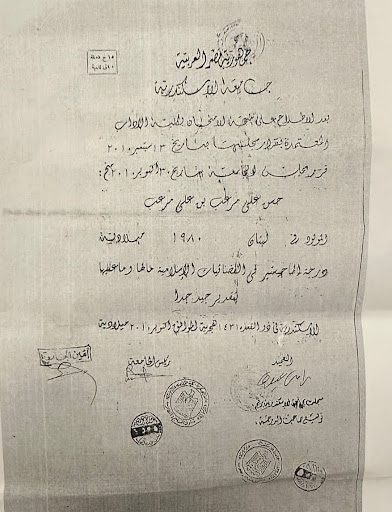 جمهورية مصر العربية
جامعة الإسكندرية
بعد الاطلاع على نتيجة الامتحان لكلية الآداب
المعتمدة بقرار مجلسها بتاريخ ١٣ سبتمبر ٢٠١٠
قرر مجلس الجامعة بتاريخ ٣٠ أكتوبر ٢٠١٠ منح:
حسن علي مرعب بن علي مرعب
المولود في لبنان ١٩٨٠ ميلادية
درجة الماجستير في الفضائيات الإسلامية مالها وما عليها
بتقدير جيد جدا
الإسكندرية في ذو القعدة ١٤٣١ هجرية الموافق أكتوبر ٢٠١٠ ميلادية
العميد رئيس الجامعة أمين الجامعة